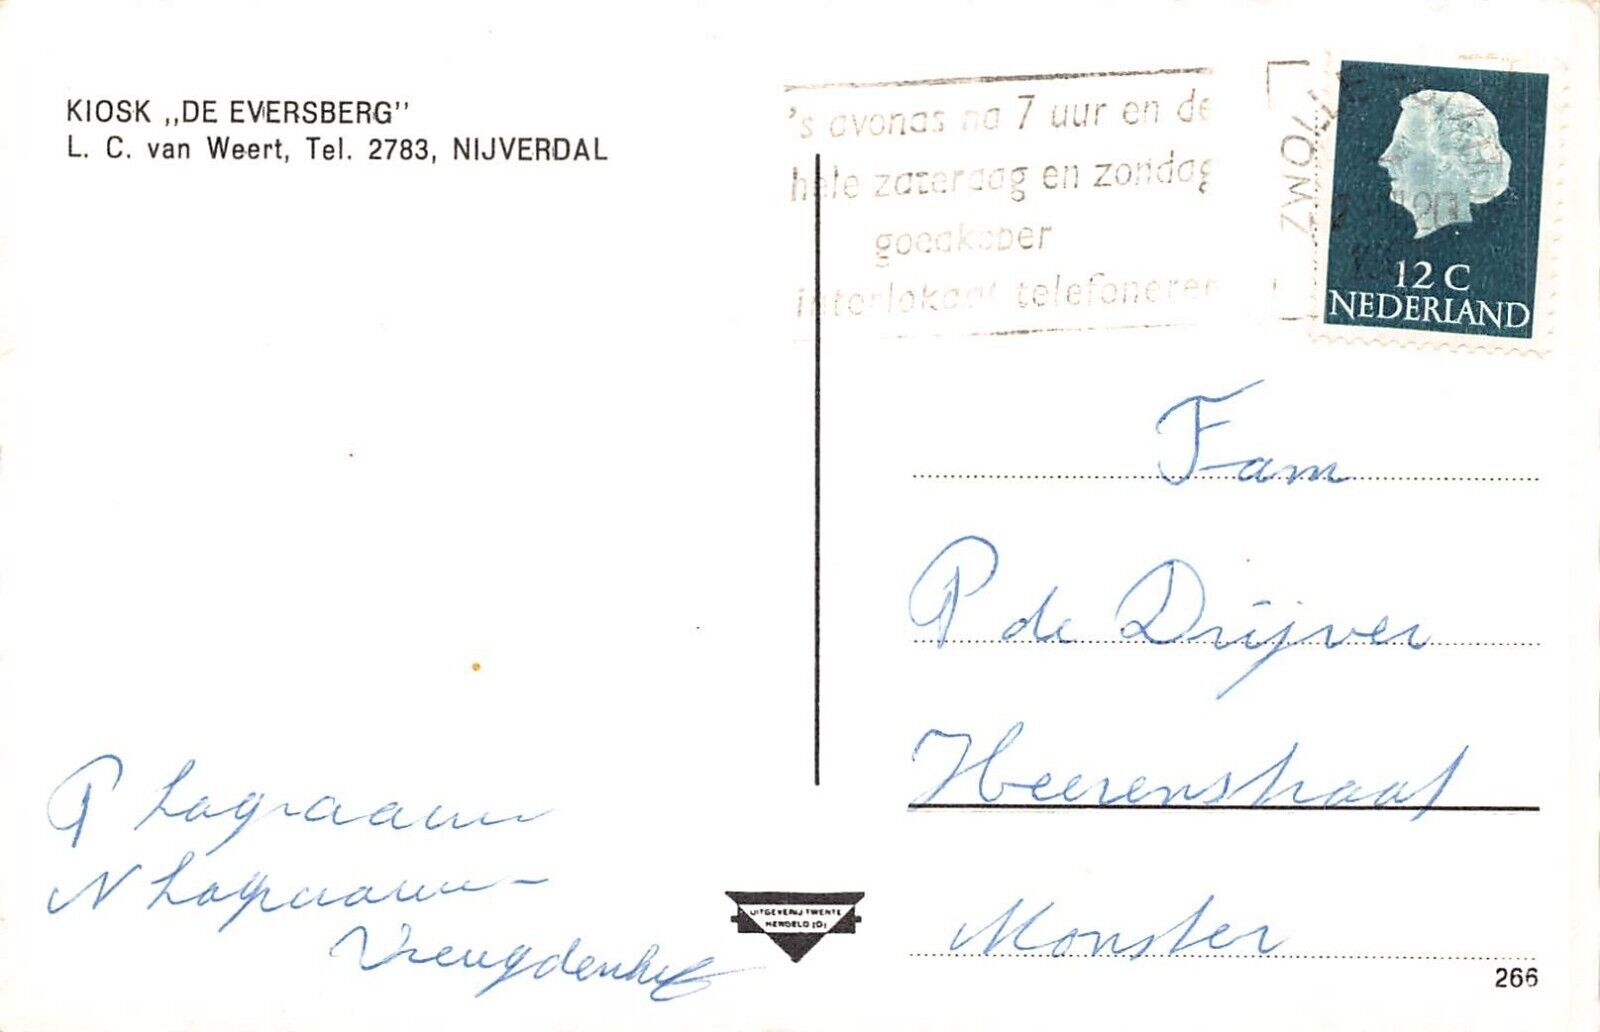 KIOSK „DE EVERSBERG"
L. C. van Weert, Tel. 2783, NIJVERDAL
's avonds na 7 uur en de
hele zaterdag en zondag
goedkoper
interlokaal telefoneren
ZWOLLE
12 C
NEDERLAND
Fam
P de Drijver
Heerenstraat
Monster
P Lagraauw
N Lagraauw-
Vreugdenhil
UITGEVERIJ TWENTE
HENGELO (O)
266